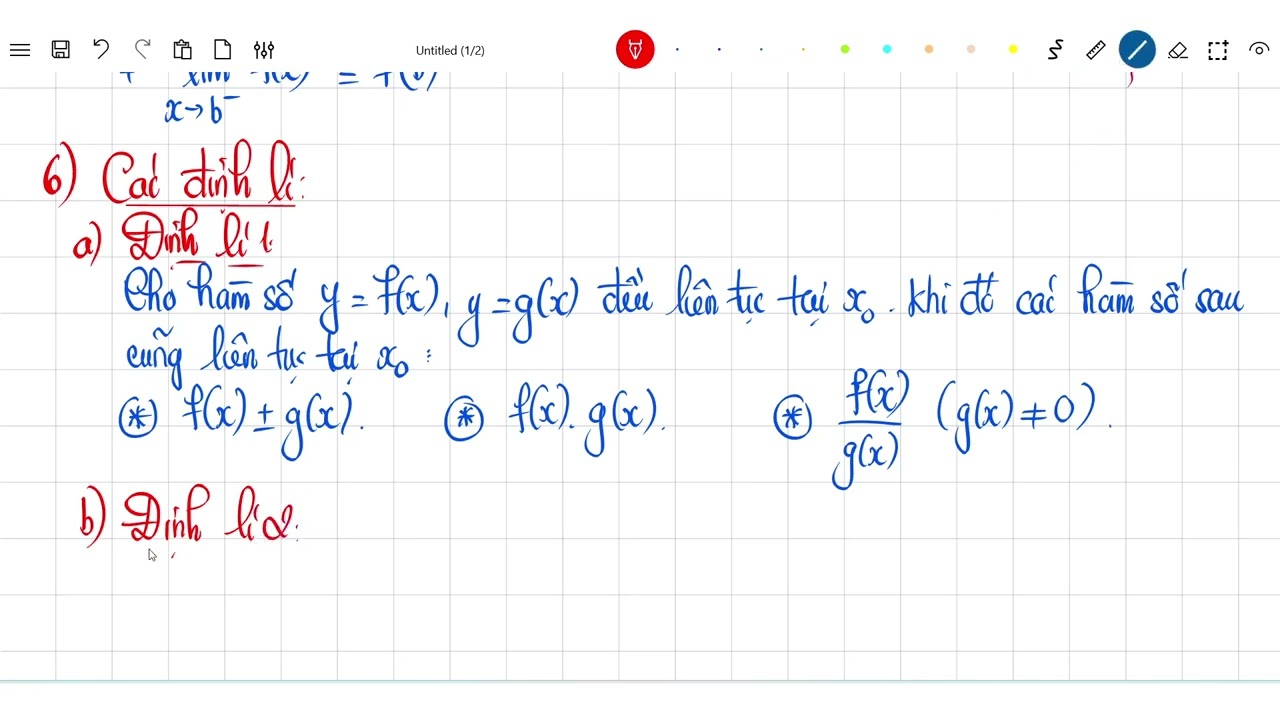 Untitled (1/2)
+ lim f(x) = f(b)
x→b⁻
6) Các định lí:
a) Định lí 1.
Cho hàm số y = f(x), y = g(x) đều liên tục tại x₀. Khi đó các hàm số sau
cũng liên tục tại x₀ :
⊛ f(x) ± g(x). ⊛ f(x). g(x). ⊛ f(x)/g(x) (g(x) ≠ 0).
b) Định lí 2: